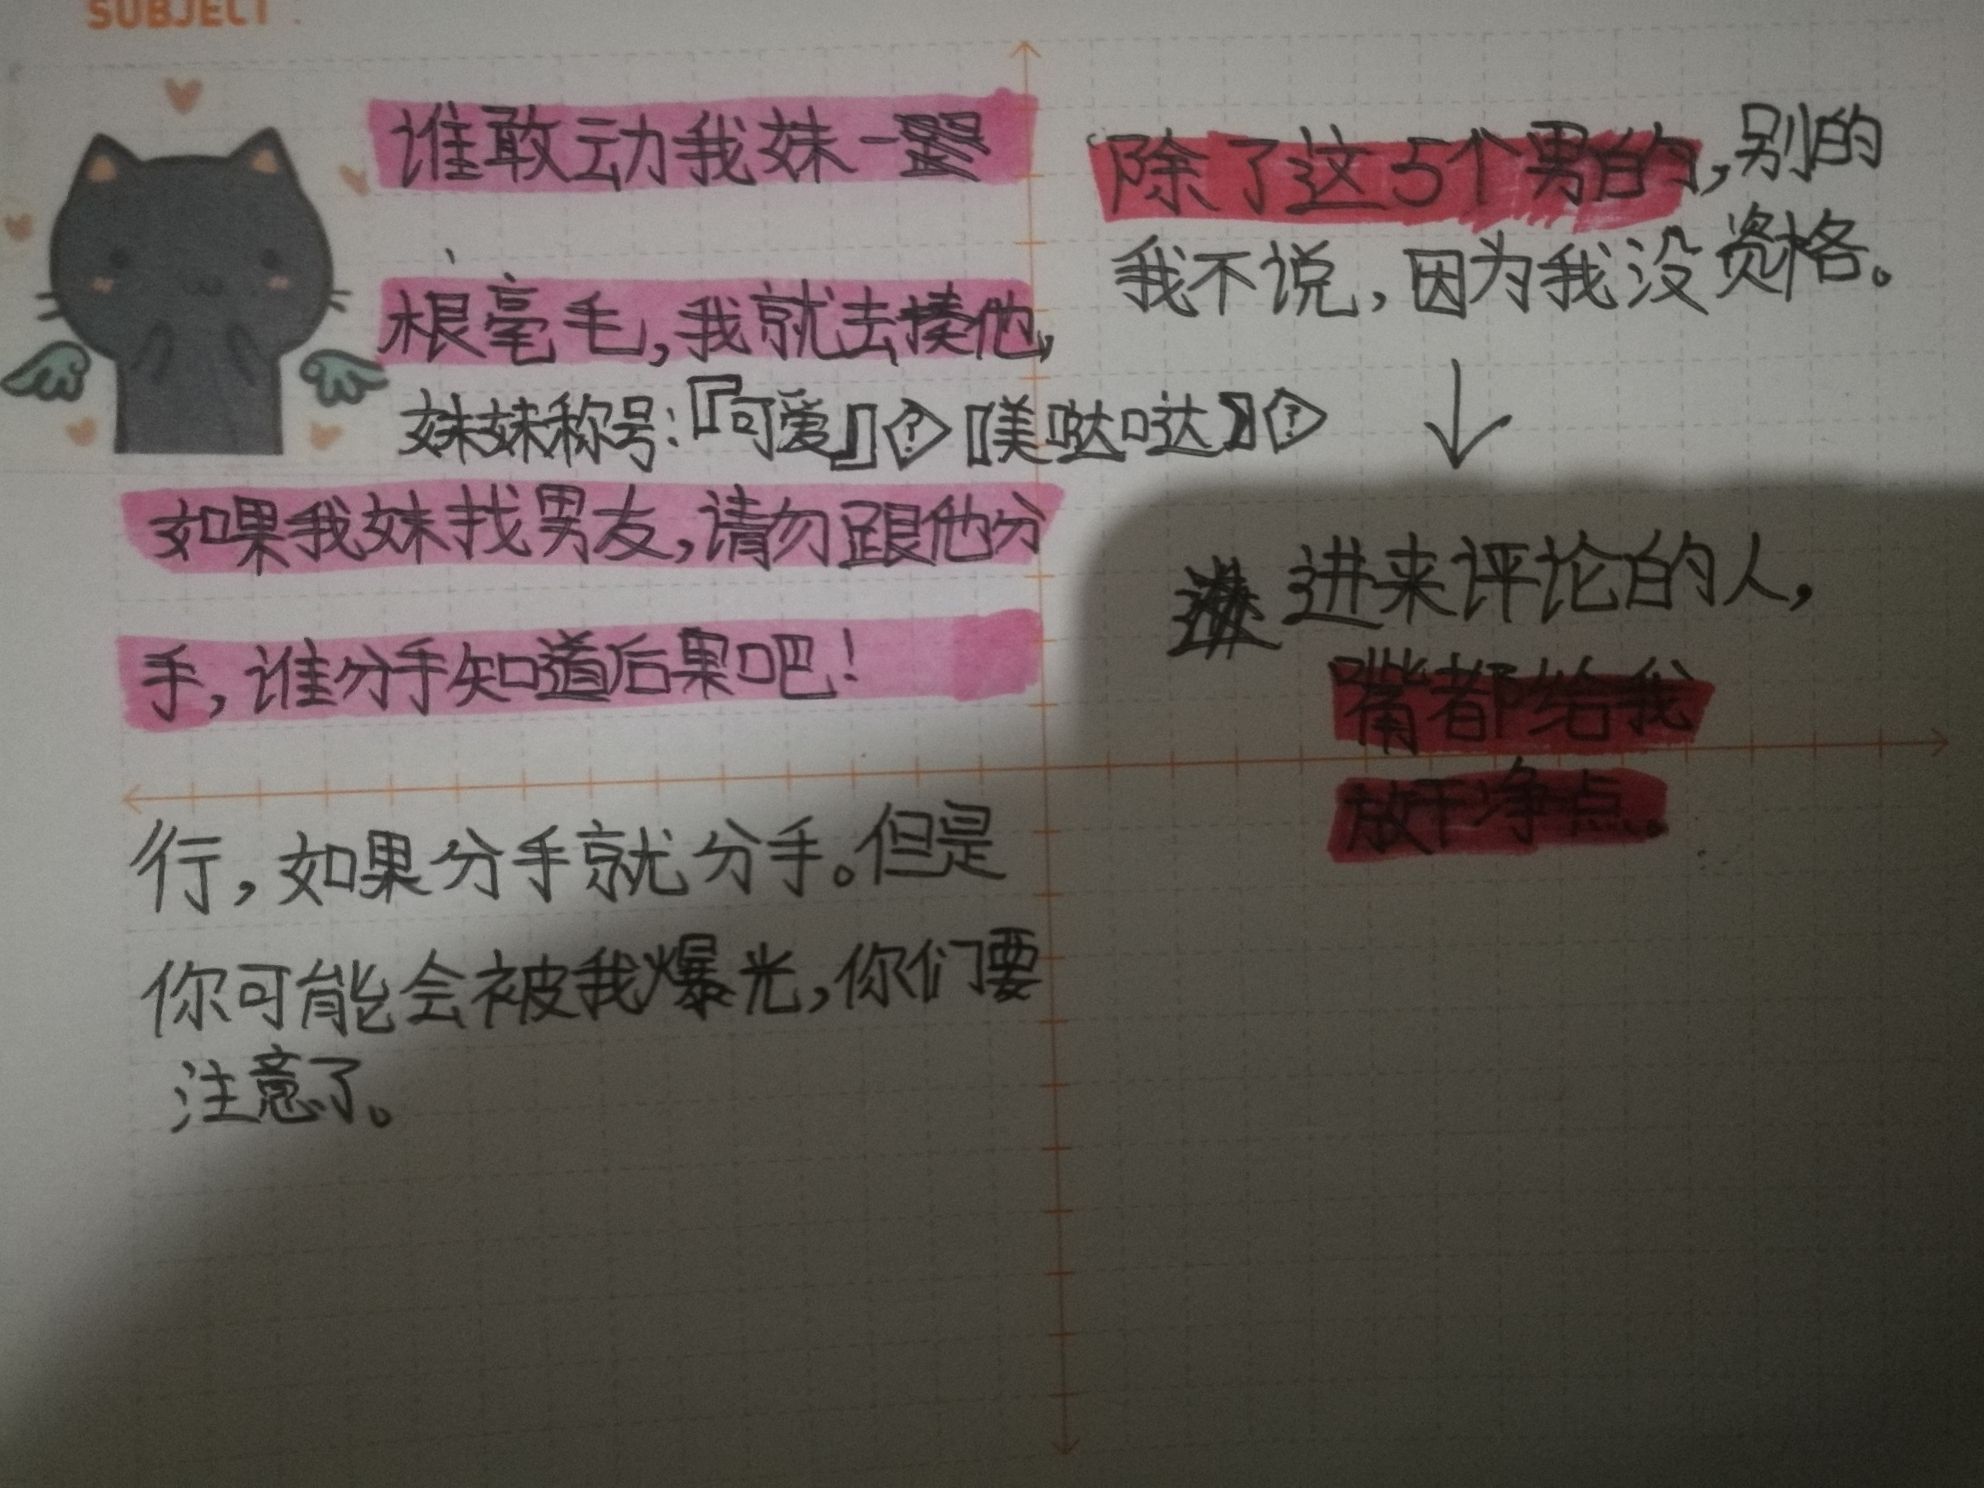 SUBJECT:
谁敢动我妹一
根毫毛,我就去揍他,
妹妹称号:『可爱』?〖美哒哒〗?
如果我妹找男友,请勿跟他分
手,谁分手知道后果吧!
行,如果分手就分手。但是
你可能会被我爆光,你们要
注意了。
除了这5个男的,别的
我不说,因为我没资格。
↓
进来评论的人,
嘴都给我
放干净点。